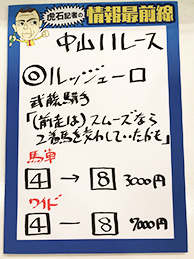 虎石記者の
情報最前線
中山11レース
◎ルッジェーロ
武藤騎手
「(前走は)スムーズなら
2着馬を交わしていたかも」
馬単
4→8 3000円
ワイド
4—8 7000円